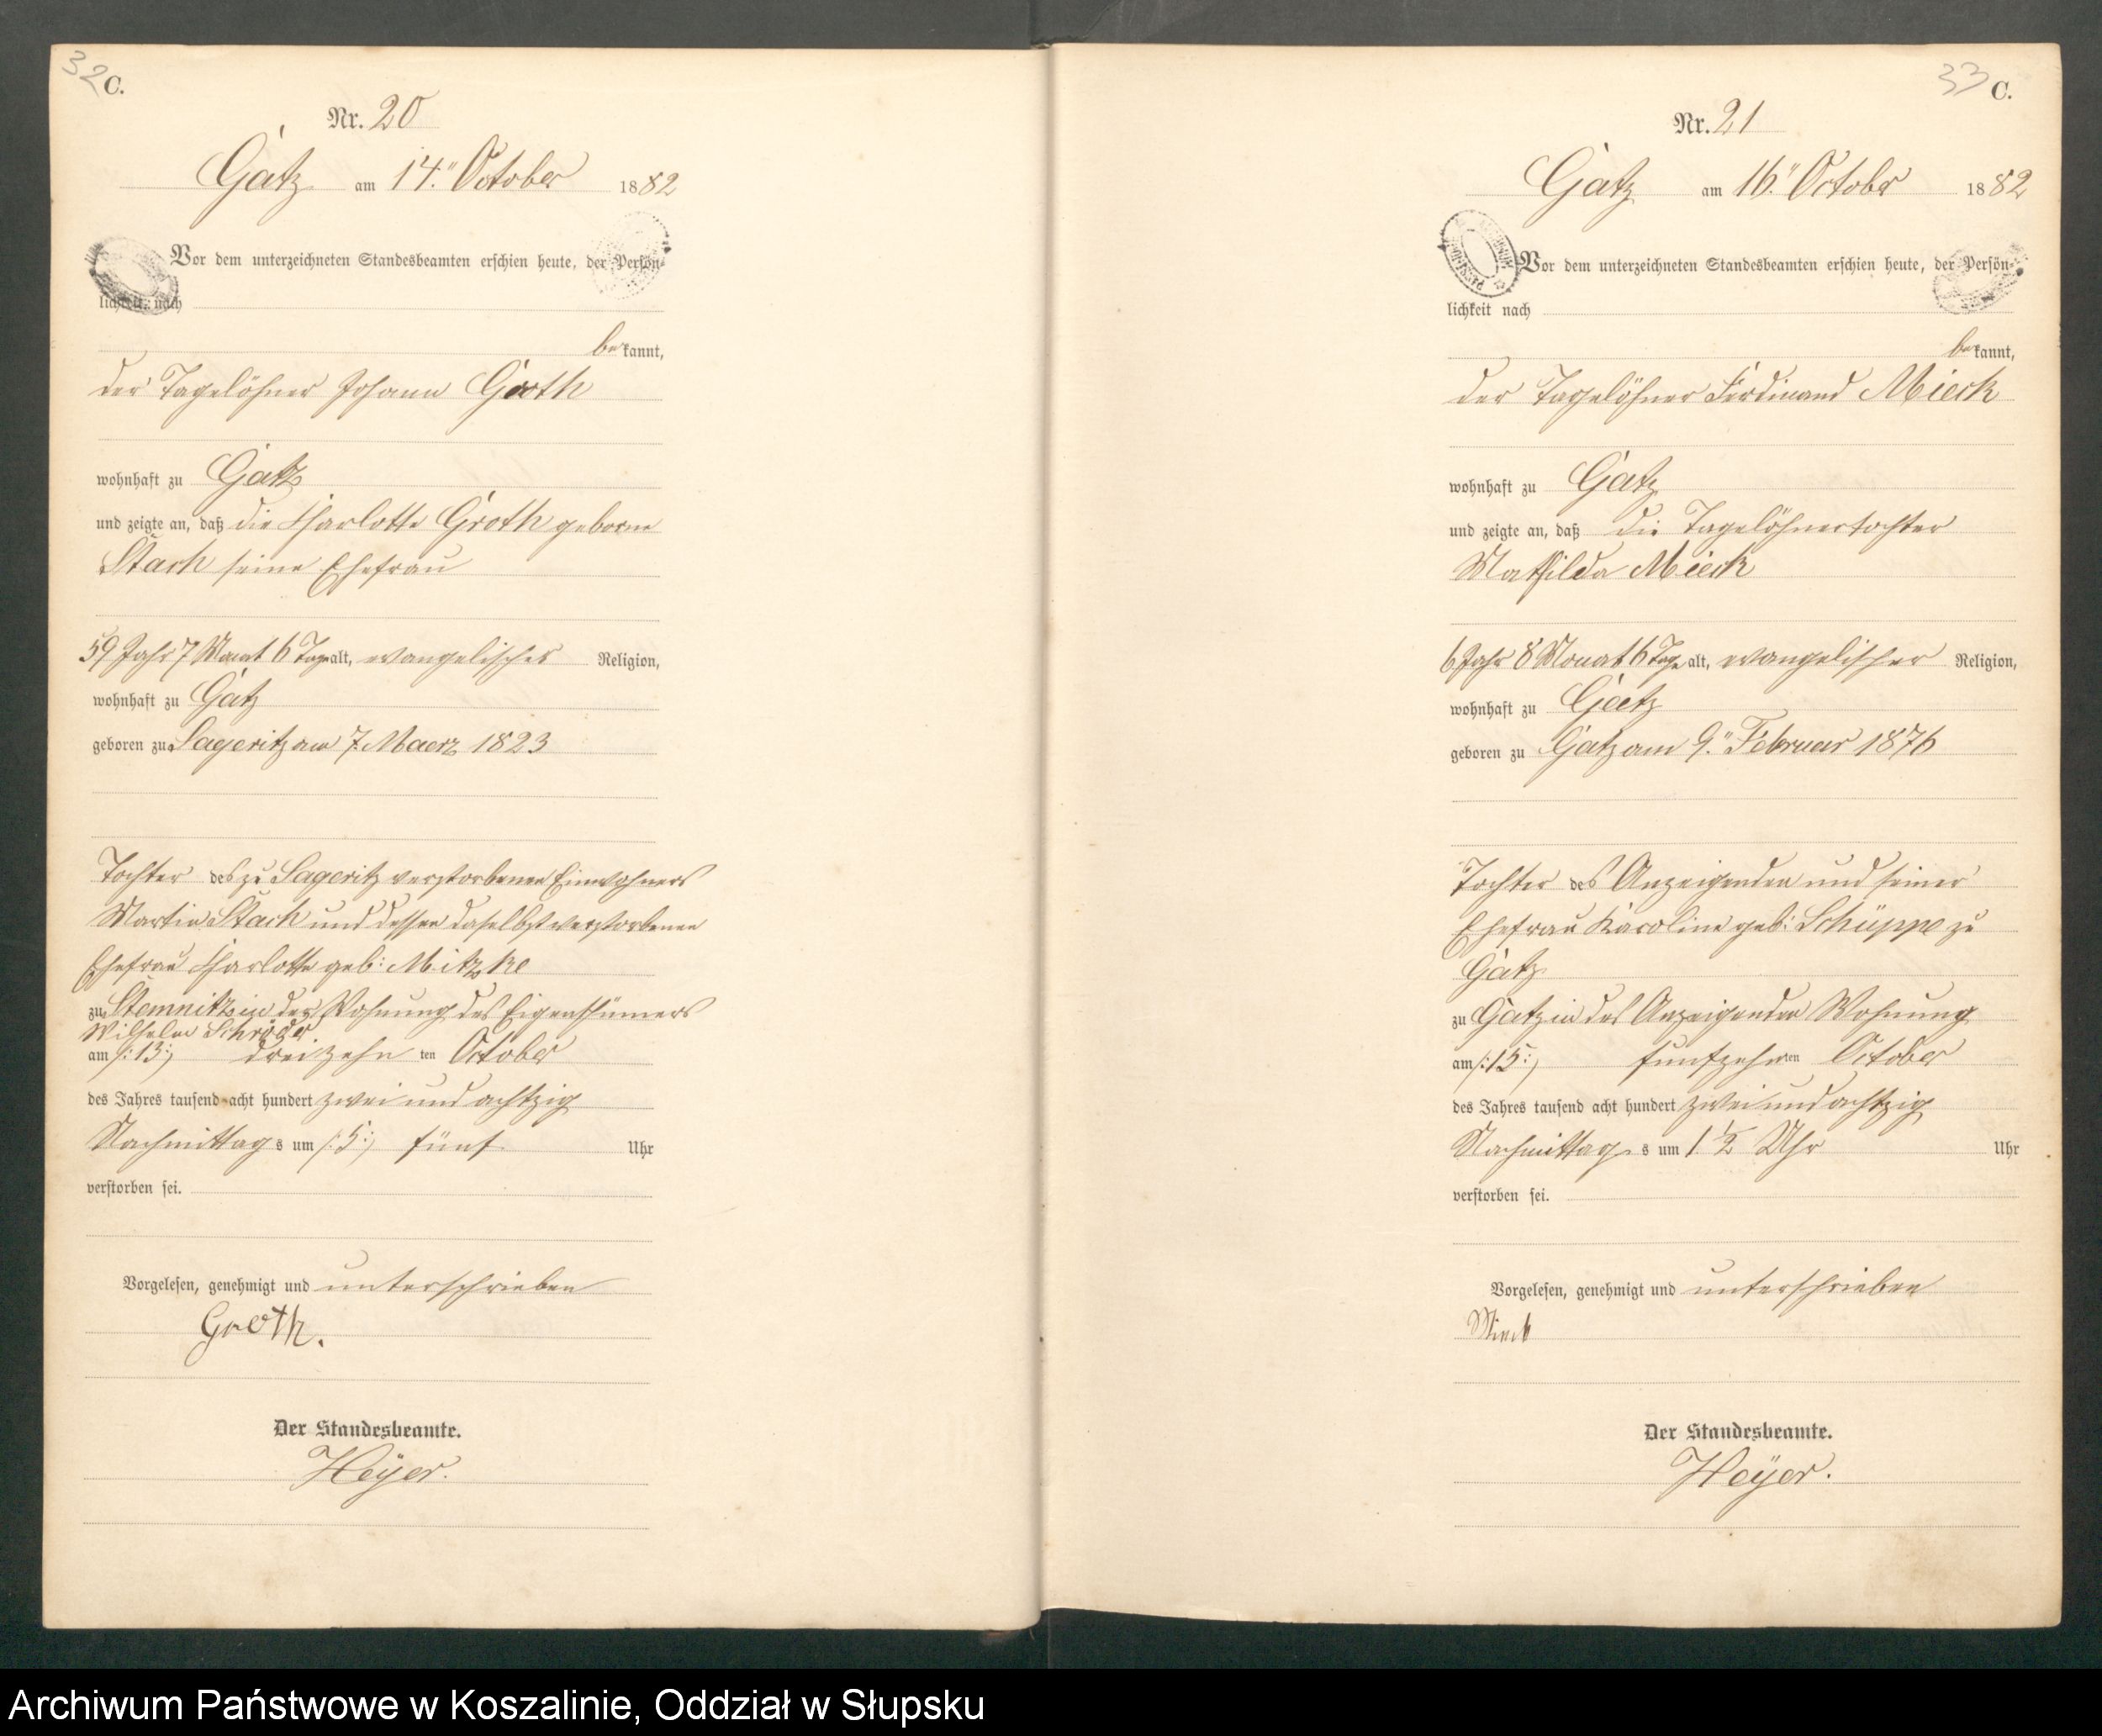 32 C.
Nr. 20
Gatz am 14. October 1882
Vor dem unterzeichneten Standesbeamten erschien heute, der Persön-
lichkeit nach
bekannt,
der Tagelöhner Johann Groth
wohnhaft zu Gatz
und zeigte an, daß die Charlotte Groth geborne
Stach seine Ehefrau
59 Jahr 7 Monat 6 Tage alt, evangelischer Religion,
wohnhaft zu Gatz
geboren zu Sageritz am 7. Maerz 1823
Tochter des zu Sageritz verstorbenen Einwohners
Martin Stach und dessen daselbst verstorbenen
Ehefrau Charlotte geb: Mitzke
zu Stemnitz in der Wohnung des Eigenthümers
Wilhelm Schröder
am /:13:/ dreizehnten October
des Jahres tausend acht hundert zwei und achtzig
Nachmittags um /:5:/ fünf Uhr
verstorben sei.
Vorgelesen, genehmigt und unterschrieben
Groth.
Der Standesbeamte.
Heÿer.
33 C.
Nr. 21
Gatz am 16. October 1882
Vor dem unterzeichneten Standesbeamten erschien heute, der Persön-
lichkeit nach
bekannt,
der Tagelöhner Ferdinand Mieck
wohnhaft zu Gatz
und zeigte an, daß die Tagelöhnertochter
Mathilda Mieck
6 Jahr 8 Monat 6 Tage alt, evangelischer Religion,
wohnhaft zu Gatz
geboren zu Gatz am 9. Februar 1876
Tochter des Anzeigenden und seiner
Ehefrau Karoline geb: Schüppe zu
Gatz
zu Gatz in des Anzeigenden Wohnung
am /:15:/ funfzehnten October
des Jahres tausend acht hundert zwei und achtzig
Nachmittags um 1 1/2 Uhr Uhr
verstorben sei.
Vorgelesen, genehmigt und unterschrieben
Mieck
Der Standesbeamte.
Heÿer.
Archiwum Państwowe w Koszalinie, Oddział w Słupsku